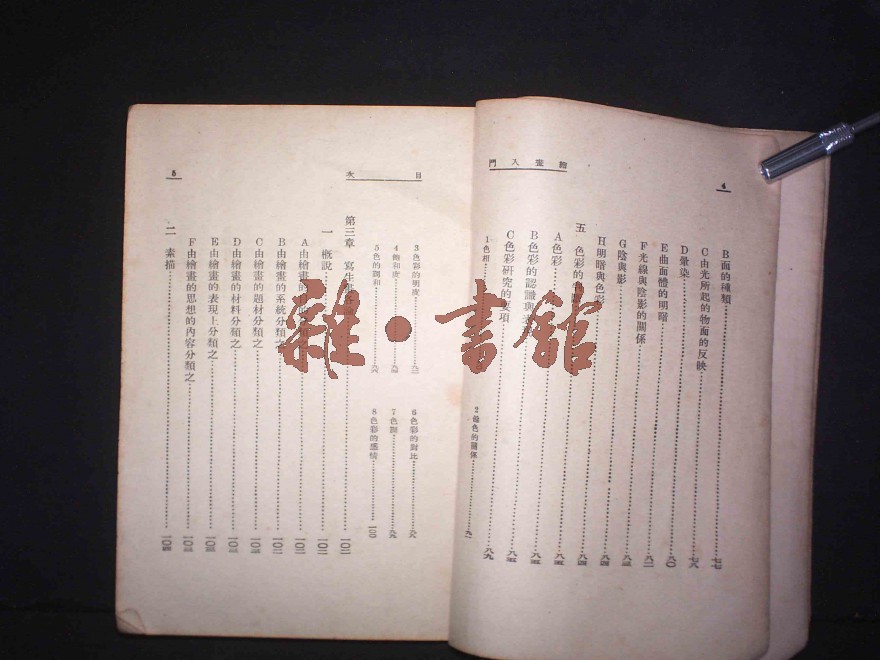 4
繪畫入門
B面的種類……七七
C由光所起的物面的反映……七八
D暈染
E曲面體的明暗……八〇
F光線與陰影的關係……八二
G陰與影……八三
H明暗與色彩……八四
五 色彩的……八四
A色彩……八五
B色彩的認識與……八五
C色彩研究的要項……八五
1色相……八九
2 色的關係……九一
目次
5
3色彩的明度……九二
4飽和度……九四
5色的調和……九六
6色彩的對比……九八
7色調……九九
8色彩的感情……一〇〇
第三章 寫生……一〇二
一 概說……一〇二
A由繪畫的……分類之……一〇二
B由繪畫的系統分類之……一〇二
C由繪畫的題材分類之……一〇三
D由繪畫的材料分類之……一〇三
E由繪畫的表現上分類之……一〇三
F由繪畫的思想的內容分類之……一〇四
二 素描……一〇四
雜·書館